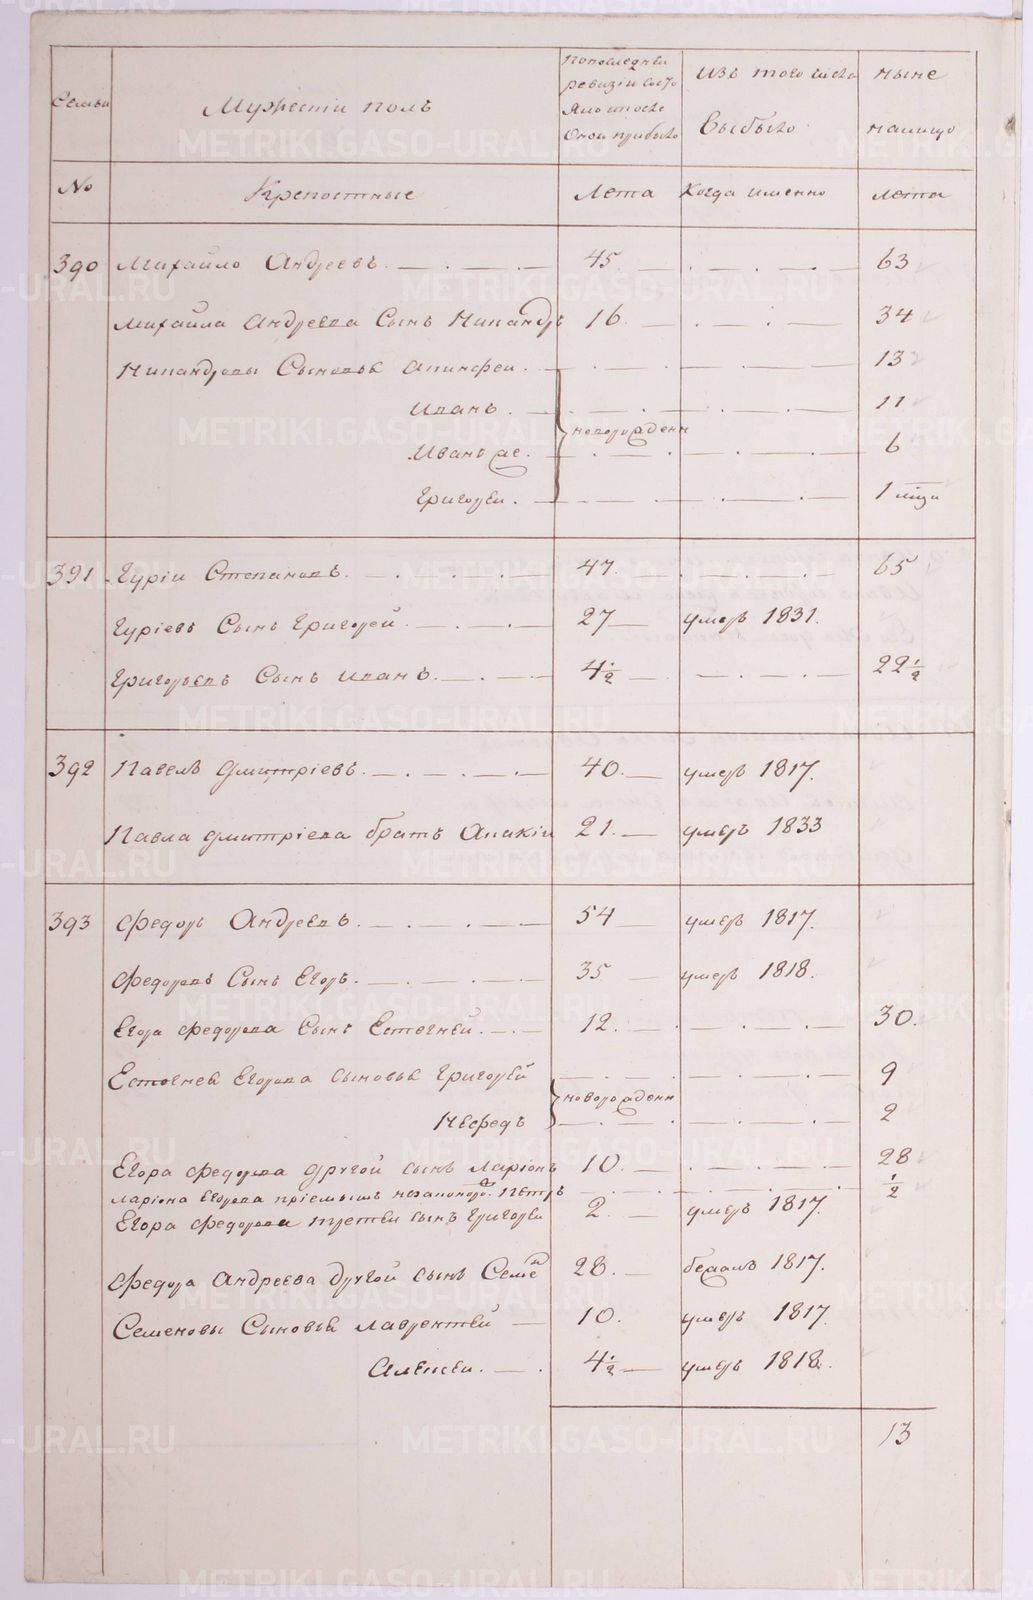 Семьи
Мужескiй полъ
Попоследней
ревизiи состо
яло ипосле
оной прибыло
Изъ того числа
выбыло
ныне
налицо
No
Крепостные
Лета
Когда именно
лета
390 Михайло Андреевъ. 45 63
Михайла Андреева Сынъ Никандръ 16 34
Никандровы Сыновья Аник 13
Иванъ. 11
новорожденн
Иванъ же. 6
Григорей. 1
391 Гурiй Степановъ. 47. 65
Гурiевъ Сынъ Григорей. 27 умеръ 1831.
Григорьевъ Сынъ Иванъ. 4 1/2 22 1/2
392 Павелъ Дмитрiевъ. 40. умеръ 1817.
Павла Дмитрiева братъ Анакiй 21. умеръ 1833
393 Федоръ Андреевъ. 54 умеръ 1817.
Федоровъ Сынъ Егоръ. 35 умеръ 1818.
Егора Федорова Сынъ Естегней. 12. 30.
Естегнея Егорова сыновья Григорей 9
новорожденн
Нефедъ 2
Егора Федорова другой сынъ Ларiонъ 10. 28
Ларiона Егорова прiемышъ незаконоро. Петръ 1/2
Егора Федорова третей сынъ Григорей 2. умеръ 1817.
Федора Андреева другой сынъ Семенъ 28. бежалъ 1817.
Семеновы Сыновья Лаврентей 10. умеръ 1817
Алексей. 4 1/2 умеръ 1818.
13
METRIKI.GASO-URAL.RU